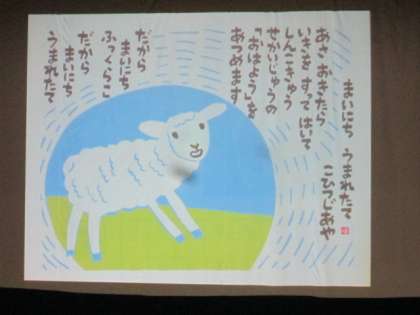 まいにち うまれたて
こひつじあや
あさ おきたら
いきを すって はいて
しんこきゅう
せかいじゅうの
「おはよう」を
あつめます
だから
まいにち
ふっくらこ
だから
まいにち
うまれたて